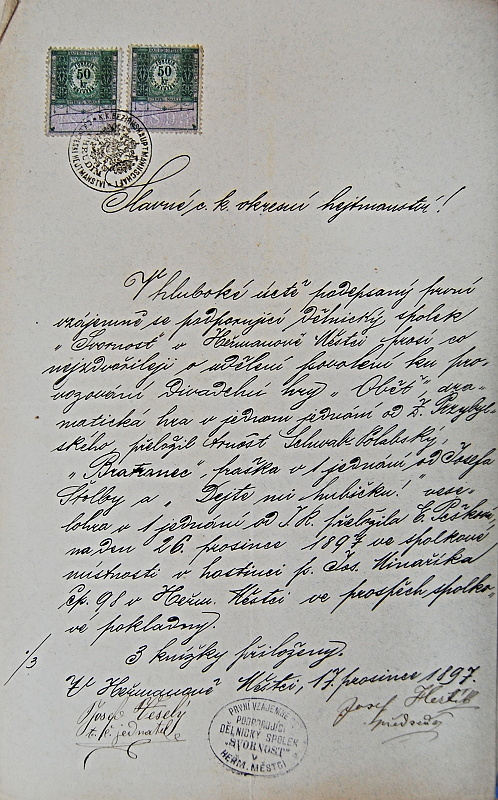 50 50
K.K. BEZIRKSHAUPTMANNSCHAFT
Slavné c. k. okresní hejtmanství!
V hluboké úctě podepsaný první
vzájemně se podporující dělnický spolek
„Svornost" v Heřmanově Městci prosí co
nejzdvořileji o udělení povolení ku pro-
vozování divadelní hry „Oběť", dra-
matická hra v jednom jednání od Z. Przybyl-
ského, přeložil Arnošt Schwab Polabský,
„Bratranec" fraška v 1 jednání od Josefa
Štolby a „Dejte mi hubičku!" vese-
lohra v 1 jednání od J. R. přeložila E. Pešková
na den 26. prosince 1897 ve spolkové
místnosti v hostinci p. Jos. Minaříka
čp. 98 v Heřm. Městci ve prospěch spolko-
vé pokladny.
3 knížky přiloženy.
·/3
V Heřmanově Městci, 17. prosince 1897.
Josef Veselý
t. č. jednatel
Josef Hertík
předseda
PRVNÍ VZÁJEMNĚ
PODPORUJÍCÍ
DĚLNICKÝ SPOLEK
„SVORNOST"
V
HEŘM. MĚSTCI